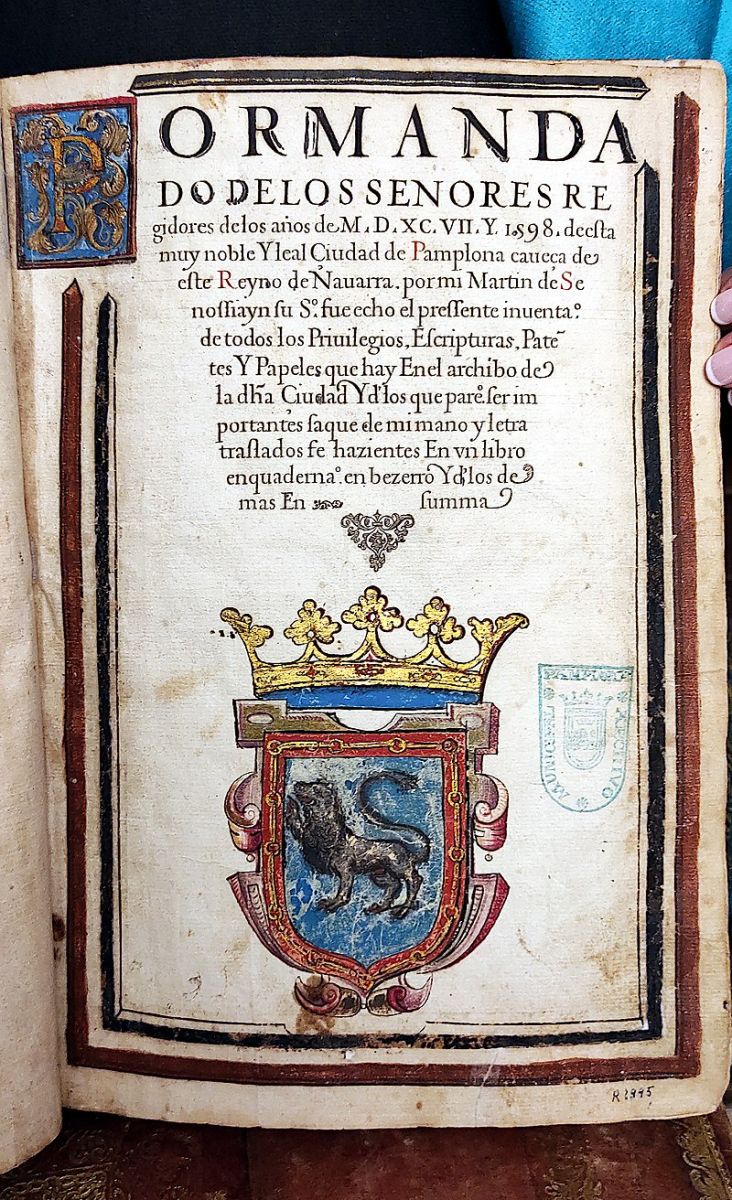 PORMANDA
DO DELOS SENORES RE
gidores delos años de M.D.XC.VII.Y.1598.deesta
muy noble Y leal Çiudad de Pamplona caueça de
este Reyno de Nauarra. por mi Martin de Se
nossiayn su Sº. fue echo el pressente inuentaº.
de todos los Priuilegios, Escripturas, Patẽ
tes Y Papeles que hay En el archibo de
la dh̃a Ciudad Y d'los que pareº. ser im
portantes saque de mi mano y letra
traslados fe hazientes En vn libro
enquadernaº. en bezerro Y d'los de
mas En summa
PAMPLONA
MUNICIPAL
ARCHIVO
R 1995